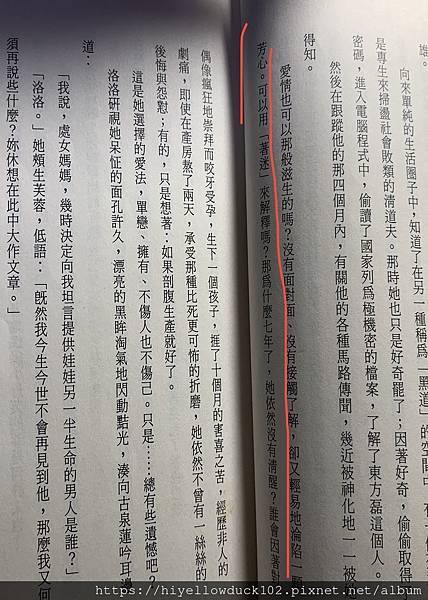 雄。
向來單純的生活圈子中，知道了在另一種稱爲「黑道」的空間中，有一
是專生來掃盪社會敗類的清道夫。那時她也只是好奇罷了；因著好奇，偷偷取得
密碼，進入電腦程式中，偷讀了國家列爲極機密的檔案，了解了東方磊這個人。
然後在跟蹤他的那四個月內，有關他的各種馬路傳聞，幾近被神化地一一被
得知。
愛情也可以那般滋生的嗎？沒有面對面、沒有接觸了解，卻又輕易地淪陷一顆
芳心。可以用「著迷」來解釋嗎？那爲什麼七年了，她依然沒有清醒？誰會因著對
偶像瘋狂地崇拜而咬牙受孕，生下一個孩子，捱了十個月的害喜之苦，經歷非人的
劇痛，即使在產房熬了兩天，承受那種比死更可怖的折磨，她依然不曾有一絲絲的
後悔與怨懟；有的，只是想著：如果剖腹生產就好了。
這是她選擇的愛法，單戀、擁有、不傷人也不傷己。只是……總有些遺憾吧？
洛洛研視她呆怔的面孔許久，漂亮的黑眸淘氣地閃動黠光，湊向古泉蓮吟耳邊
道：
「我說，處女媽媽，幾時決定向我坦言提供娃娃另一半生命的男人是誰？」
「洛洛。」她頰生芙蓉，低語：「旣然我今生今世不會再見到他，那麼我又何
須再說些什麼？妳休想在此中大作文章。」
https://hiyellowduck102.pixnet.net/album